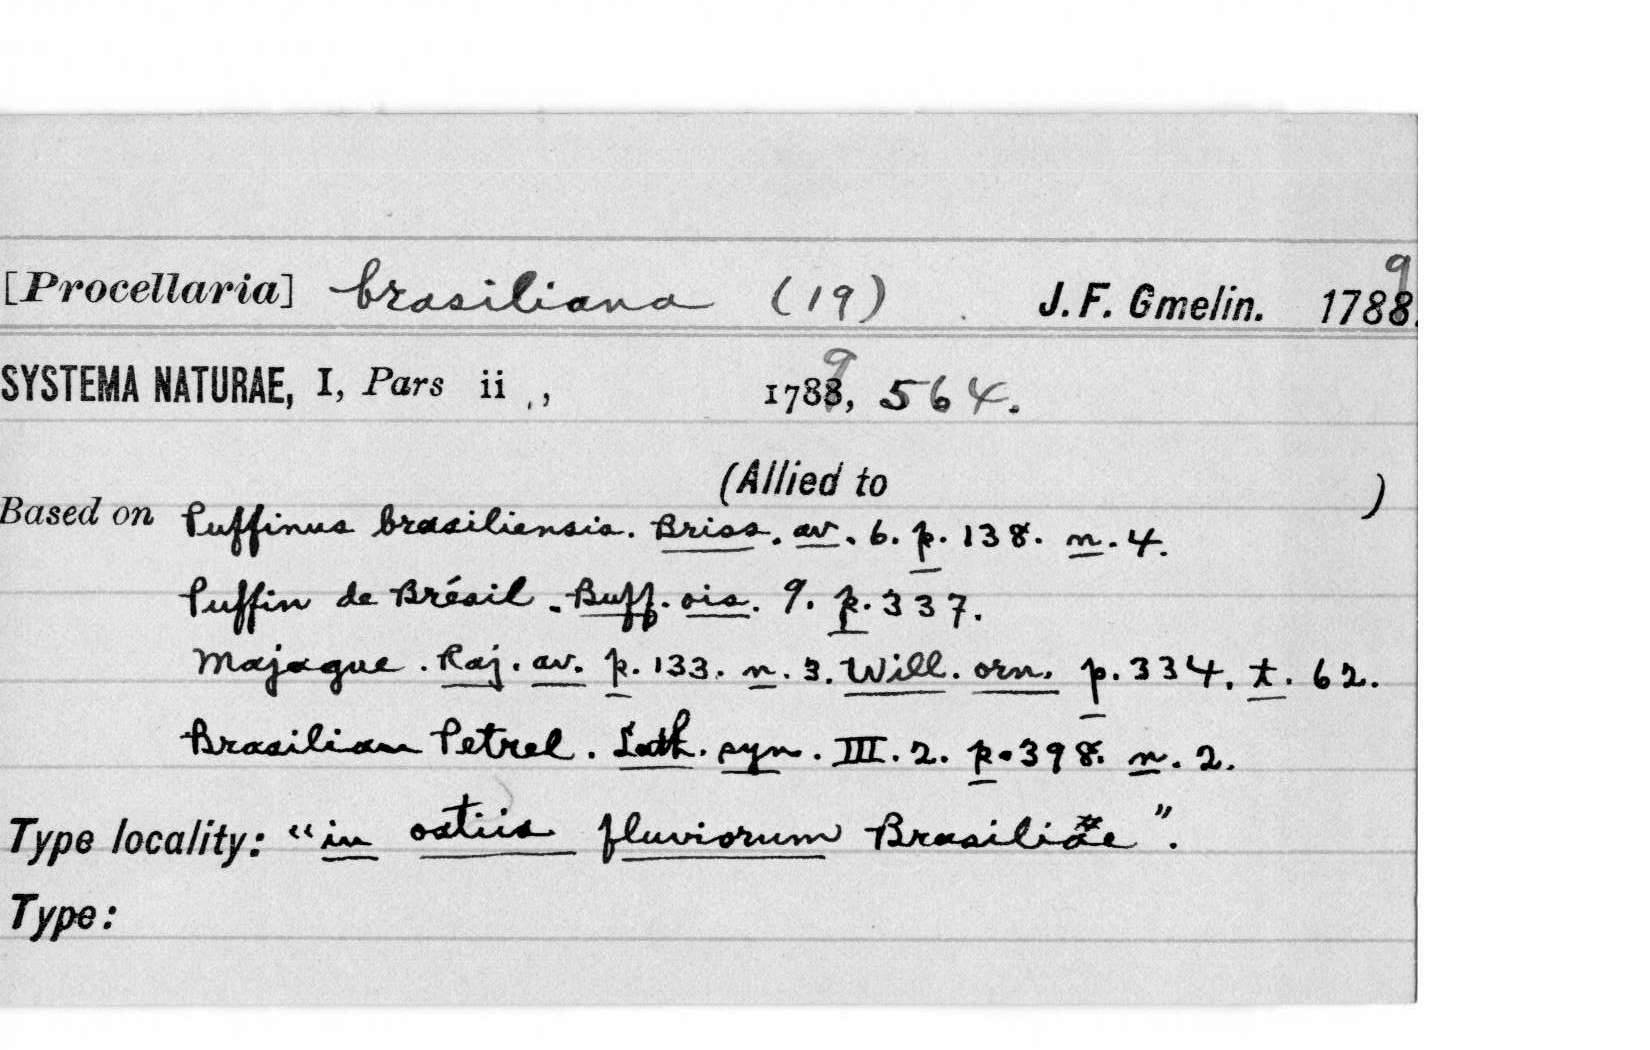 [Procellaria] brasiliana (19) J. F. Gmelin. 1789.
SYSTEMA NATURAE, I, Pars ii , 1789, 564.
(Allied to )
Based on Puffinus brasiliensis. Briss. av. 6. p. 138. n. 4.
Puffin de Brésil. Buff. ois. 9. p. 337.
Majague. Raj. av. p. 133. n. 3. Will. orn. p. 334. t. 62.
Brasilian Petrel. Lath. syn. III. 2. p. 398. n. 2.
Type locality: "in ostiis fluviorum Brasiliae".
Type: